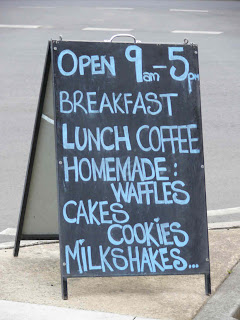 OPEN 9am-5pm
BREAKFAST
LUNCH COFFEE
HOMEMADE:
WAFFLES
CAKES
COOKIES
MILKSHAKES...